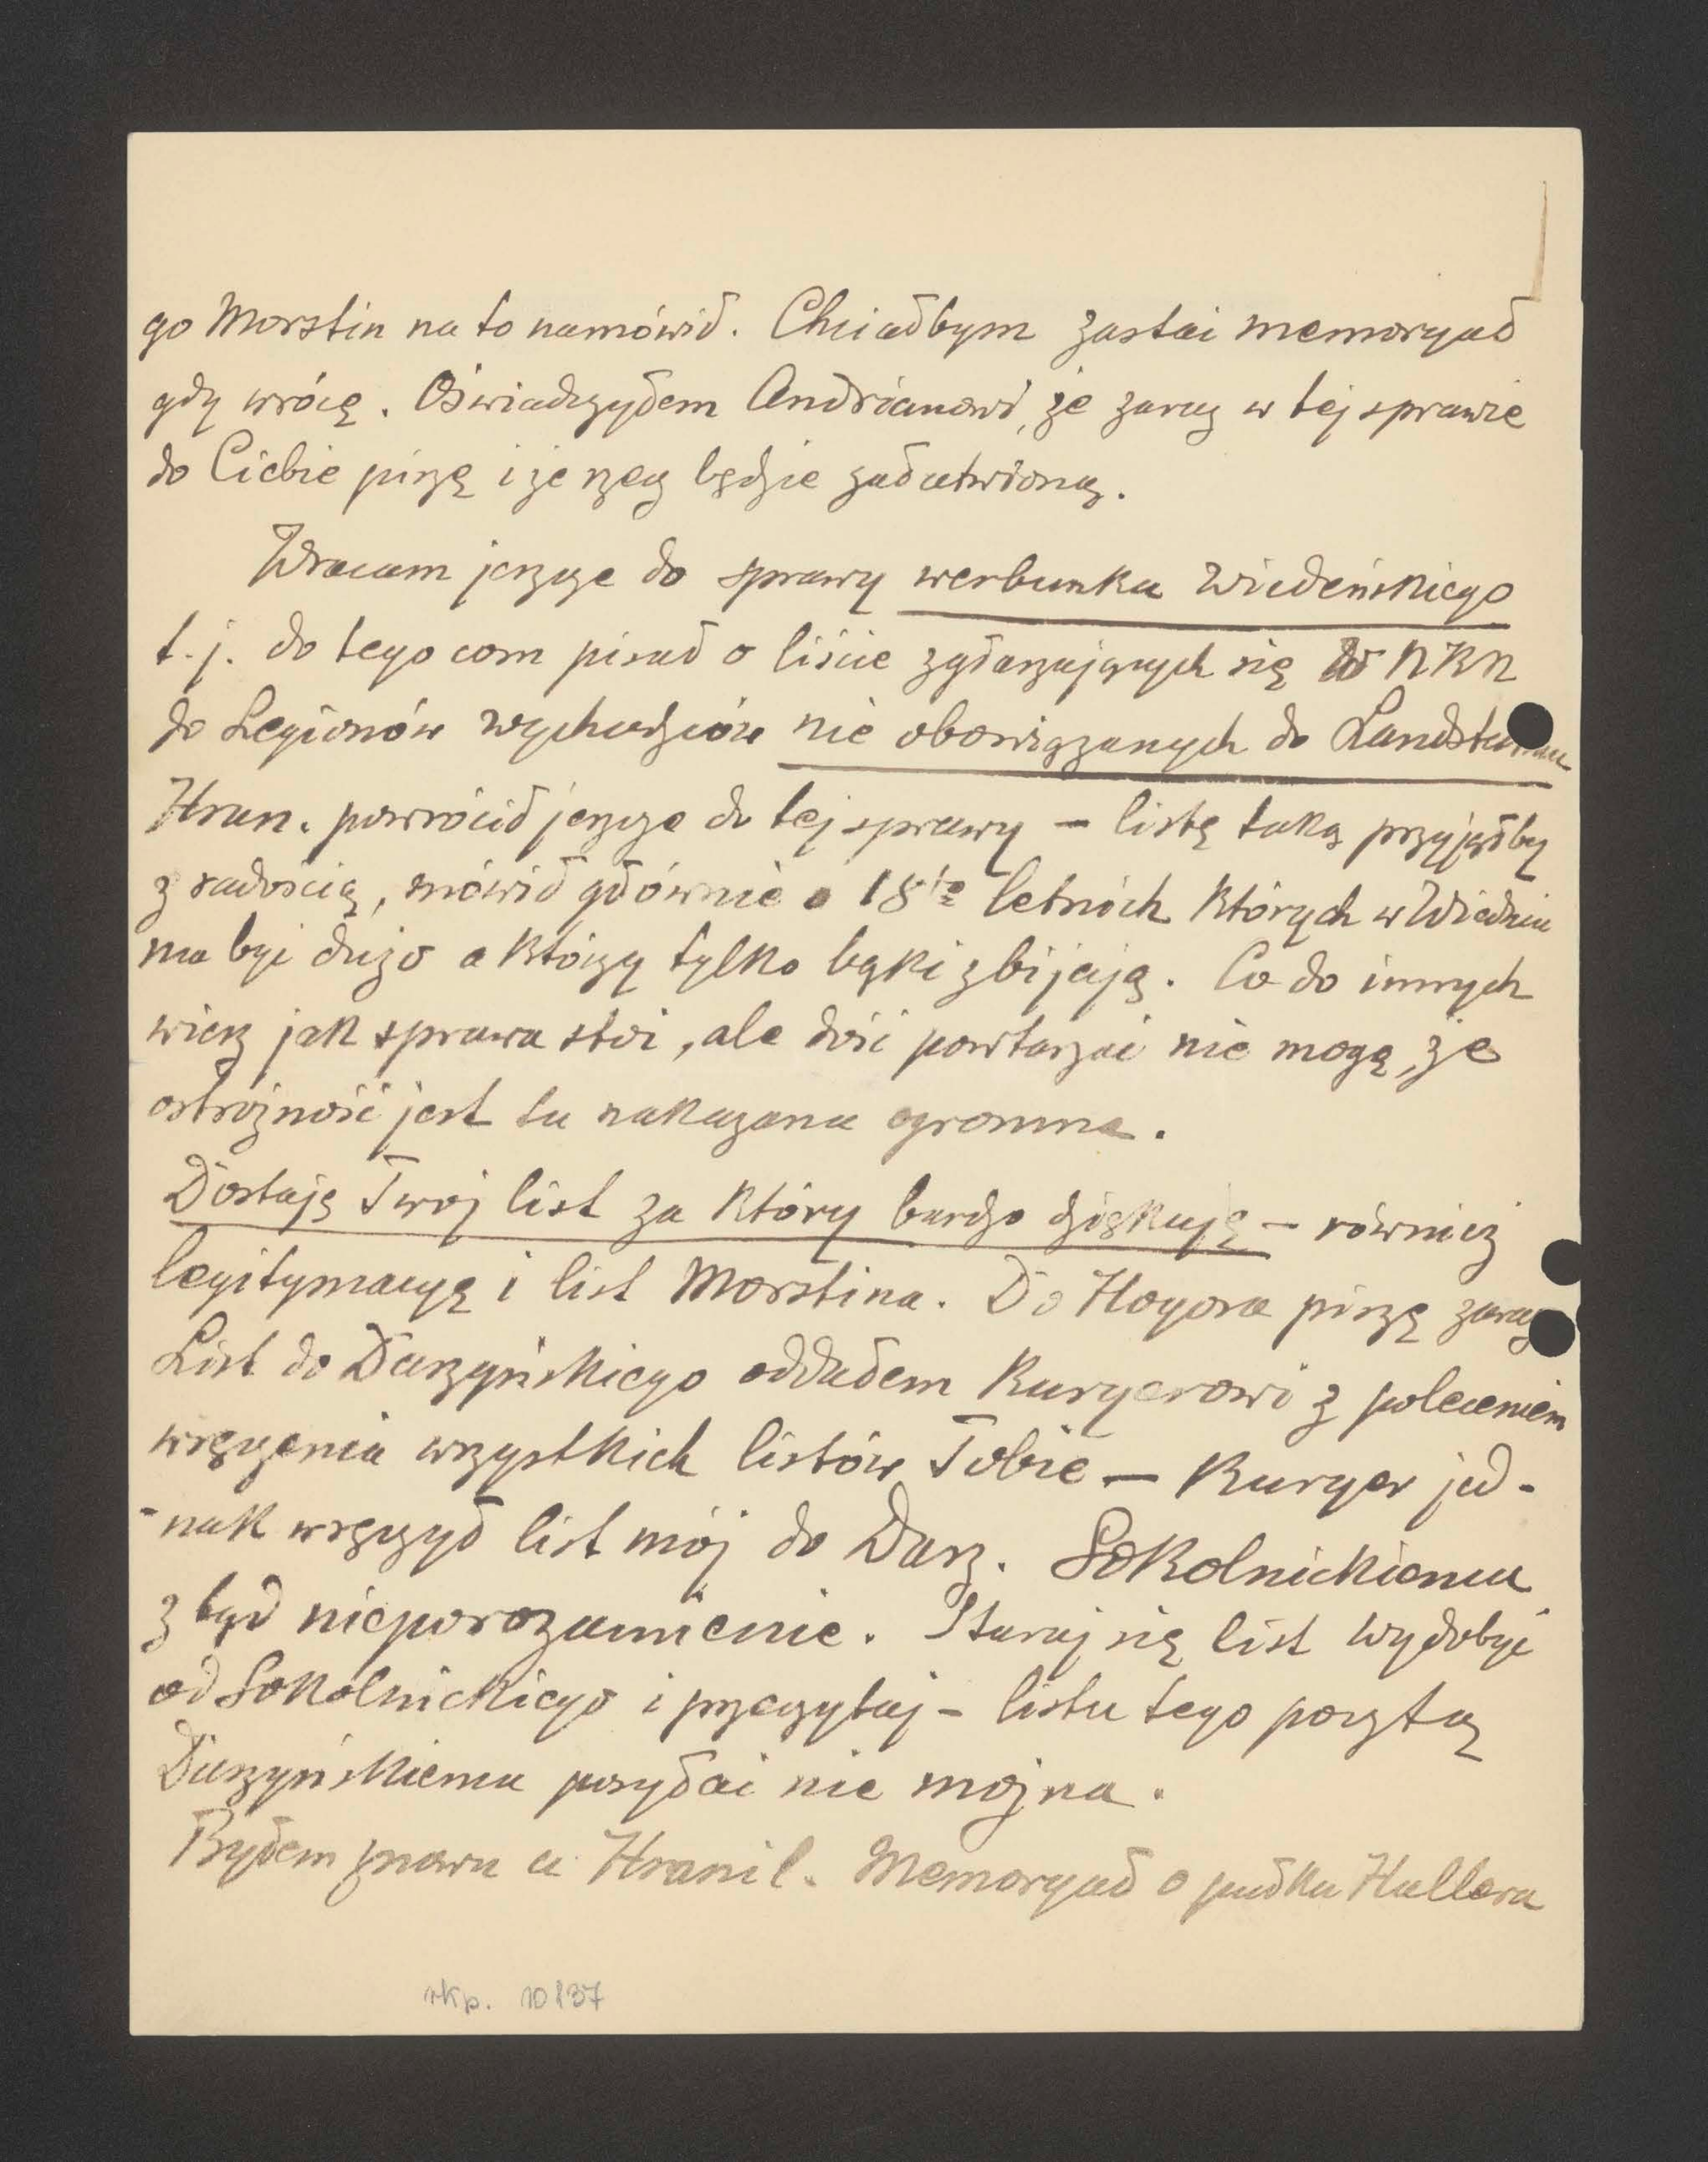 go Morstin na to namówił. Chciałbym zastać memoryał
gdy wrócę. Oświadczyłem Andrianowi, że zaraz w tej sprawie
do Ciebie piszę i że rzecz będzie załatwioną.
Wracam jeszcze do sprawy werbunku wiedeńskiego
t.j. do tego com pisał o liście zgłaszających się do NKN
do Legionów wychodźców nie obowiązanych do Landsturmu
Hran. powrócił jeszcze do tej sprawy – listę taką przyjąłby
z radością, mówił głównie o 18to letnich których w Wiedniu
ma być dużo a którzy tylko bąki zbijają. Co do innych
wiesz jak sprawa stoi, ale dość powtarzać nie mogę, że
ostrożność jest tu nakazana ogromna.
Dostaję Twój list za który bardzo dziękuję – również
legitymacyę i list Morstina. Do Hoyora piszę zaraz
List do Daszyńskiego oddałem Kuryerowi z poleceniem
wręczenia wszystkich listów Tobie – Kuryer jed-
-nak wręczył list mój do Dasz. Sokolnickiemu
z tąd nieporozumienie. Staraj się list wydobyć
od Sokolnickiego i przeczytaj – listu tego pocztą
Daszyńskiemu posyłać nie można.
Byłem znowu u Hranil. Memoryał o pułku Hallera
rkp. 10137